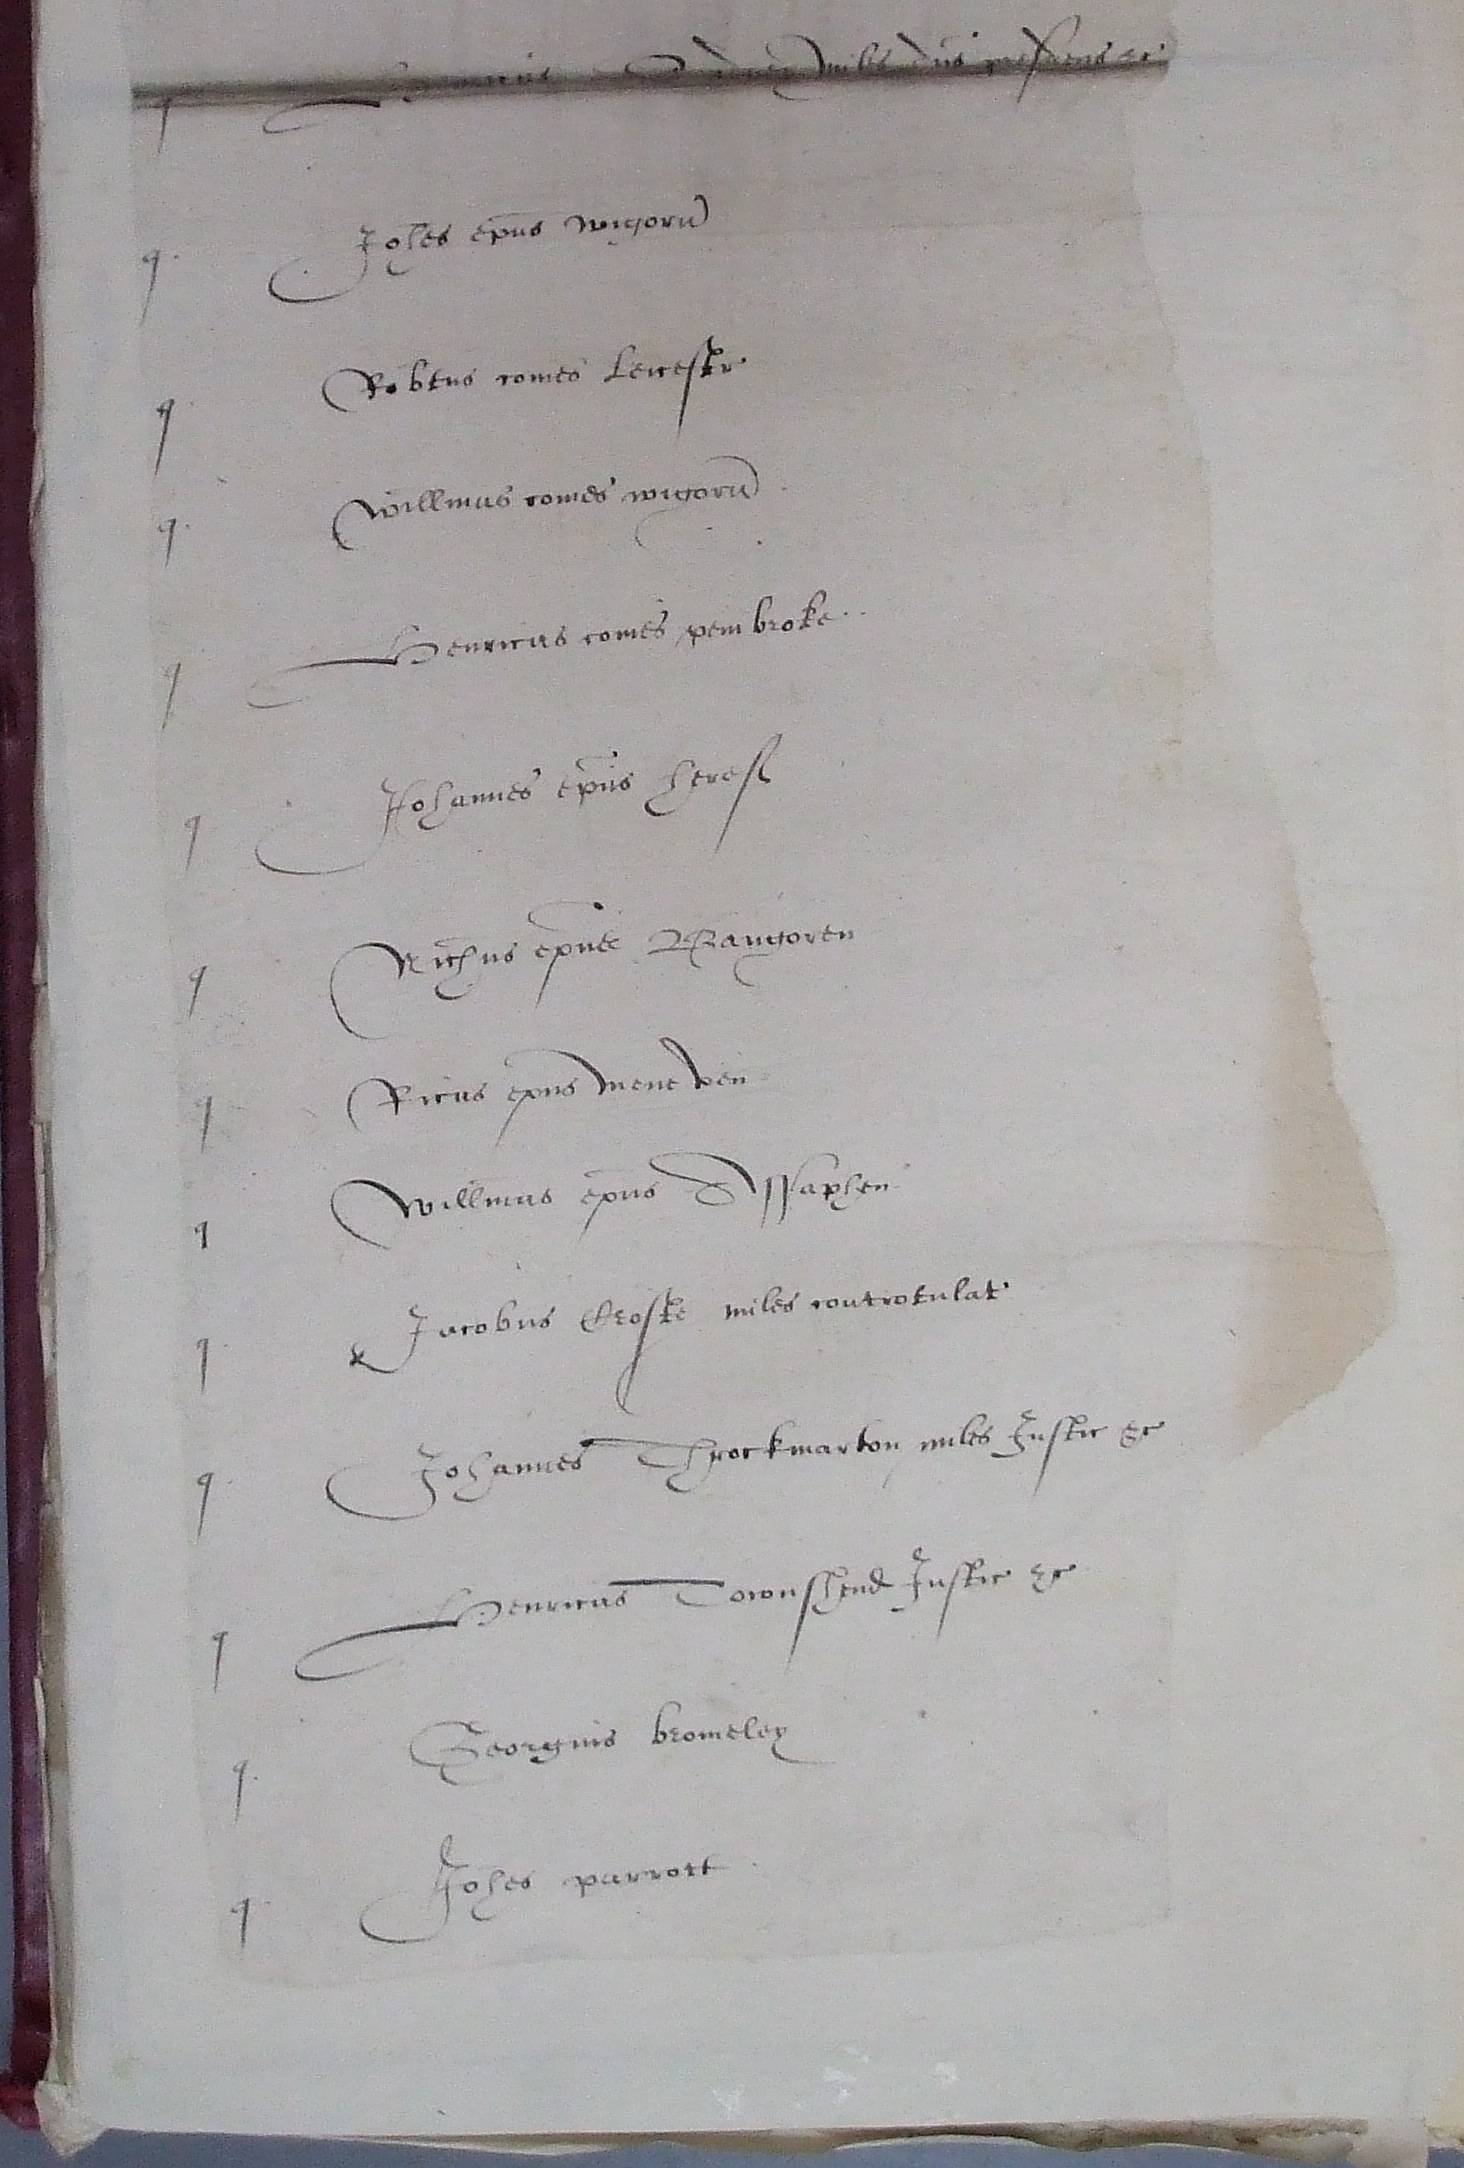 q Henricus Sidney miles dns presidens &c
q. Johes epus wigorn
q Robtus comes Leicestr
q. Willmus comes wigorn
q Henricus comes pembroke
q Johannes epus heref
q Nichus epus Bangoren
q Ricus epus meneven
q Willmus epus Assaphen
q Jacobus Crofte miles controtulat
q Johannes Throckmarton miles Justic &c
q Henricus Townshend Justic &c
q. Georgius bromeley
q Johes parrott